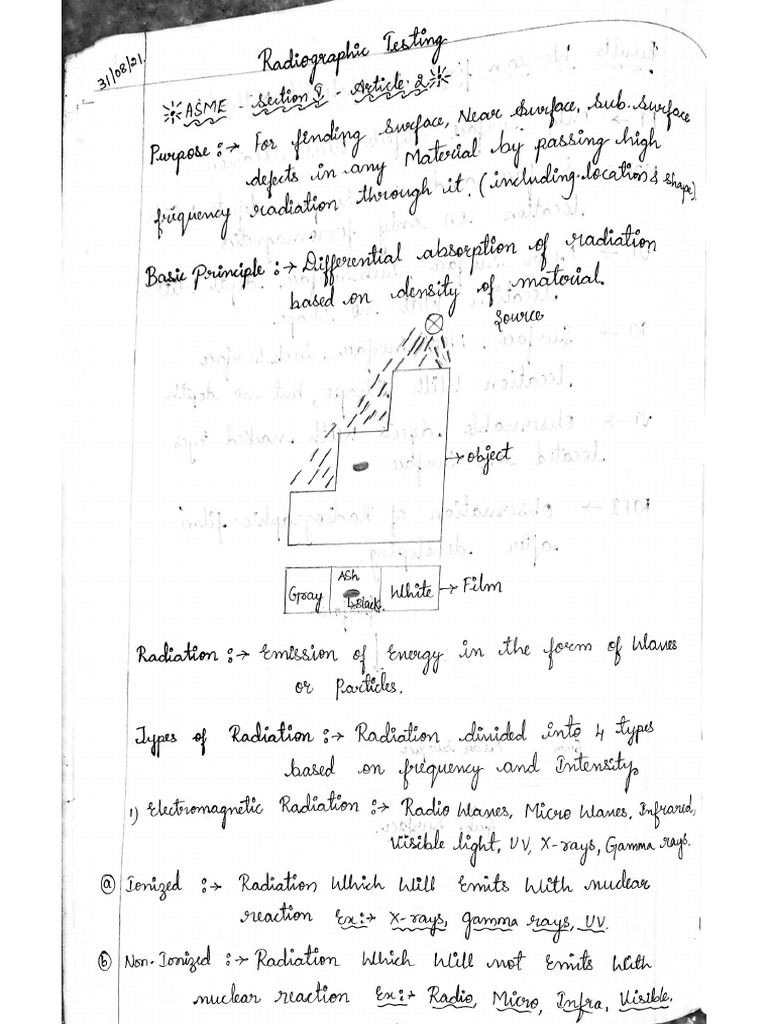 31/08/21
Radiographic Testing
ASME - Section V - Article. 2
Purpose :→ For finding Surface, Near Surface, Sub. Surface
defects in any Material by passing high
frequency radiation through it. (including. location & shape)
Basic Principle :→ Differential absorption of radiation
based on density of material.
Source
→ object
Gray
Ash
↳ Black.
White
→ Film
Radiation :→ Emission of Energy in the form of Waves
or Particles.
Types of Radiation :→ Radiation divided into 4 types
based on frequency and Intensity.
1) Electromagnetic Radiation :→ Radio Waves, Micro Waves, Infrared,
Visible light, UV, X-rays, Gamma rays.
ⓐ Ionized :→ Radiation Which Will Emits With nuclear
reaction Ex :→ X-rays, gamma rays, UV.
ⓑ Non-Ionized :→ Radiation Which Will not Emits With
nuclear reaction Ex :→ Radio, Micro, Infra, Visible.